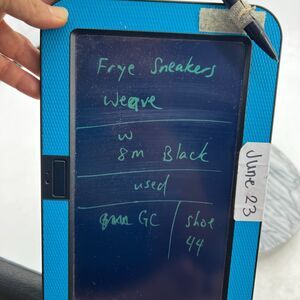 Frye Sneakers
Weave
W
8M Black
used
GC
Shoe
44
June 23